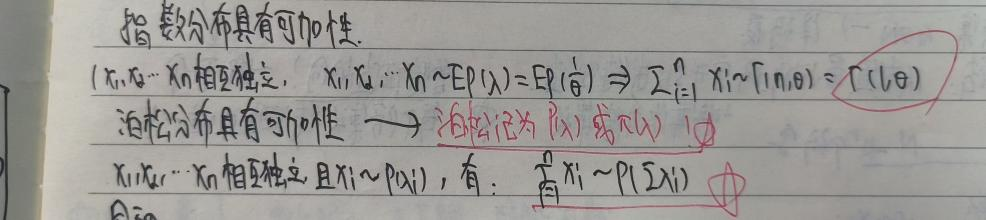 指数分布具有可加性.
(x₁,x₂…xn相互独立, x₁,x₂,…xn~EP(λ)=EP(1/θ) ⇒ Σᵢ₌₁ⁿ xᵢ~Γ(n,θ) = Γ(1,θ)
泊松分布具有可加性 → 泊松记为P(λ)或π(λ)!
x₁,x₂,…xn相互独立且xᵢ~P(λᵢ), 有: Σᵢ₌₁ⁿ xᵢ~P(Σλᵢ)